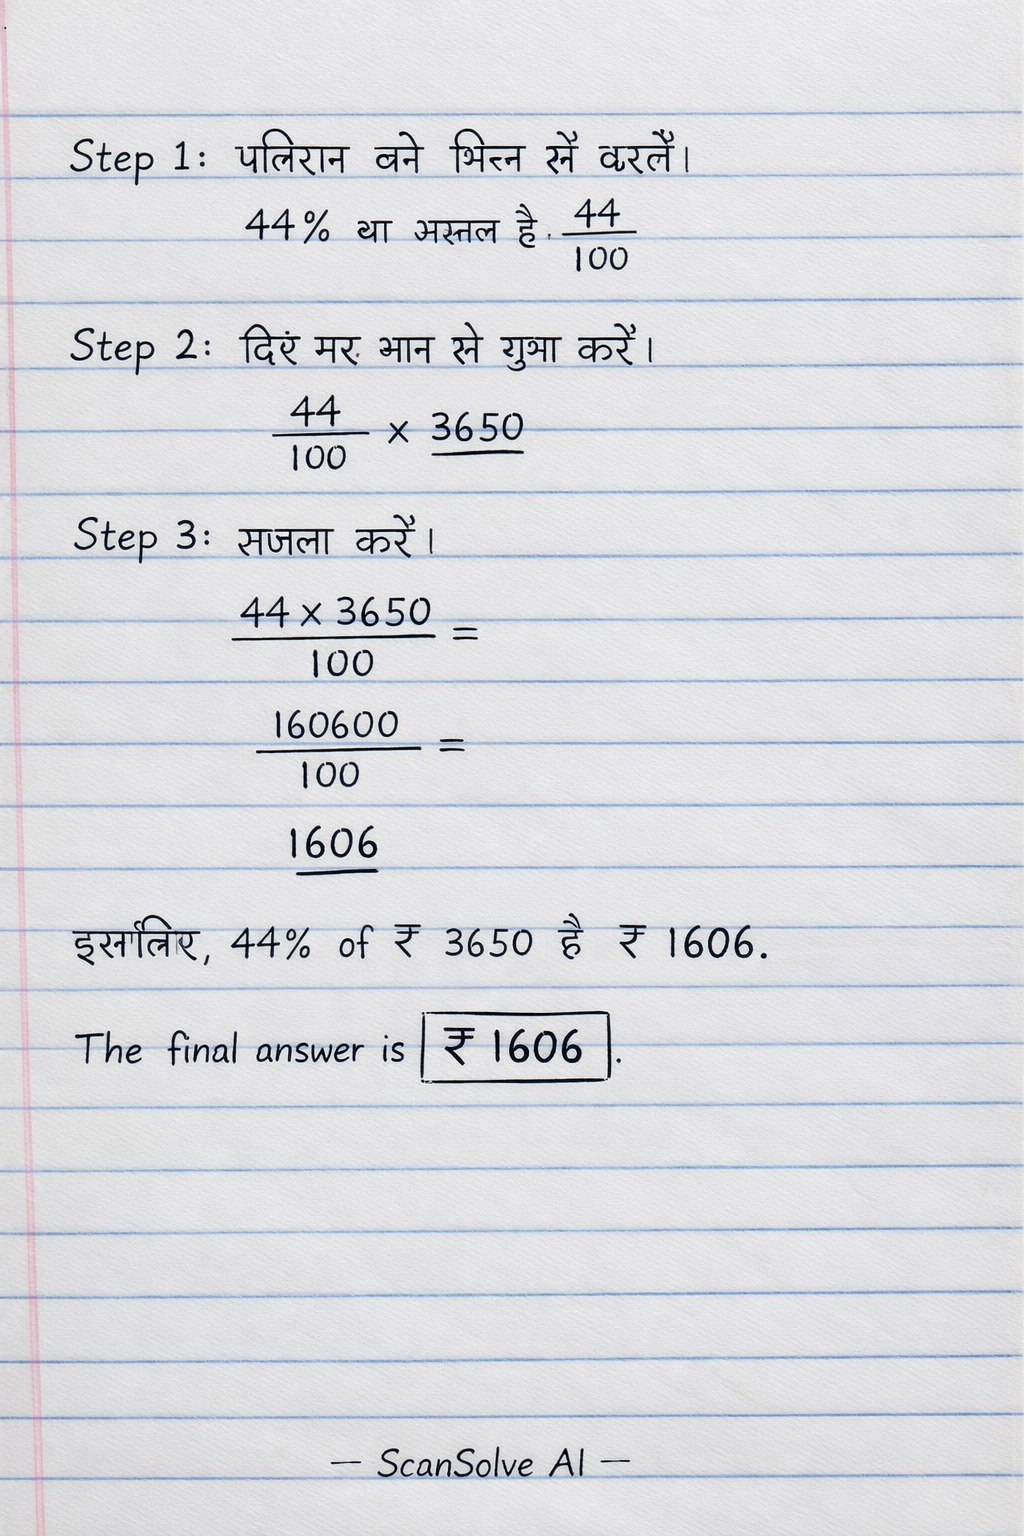 Step 1: पलिरान बने भिन्न सें वरलें।
44% या अस्तल है. 44/100
Step 2: दिएं मर. भान से गुभा करें।
44/100 × 3650
Step 3: सजला करें।
44 × 3650/100 =
160600/100 =
1606
इसलिए, 44% of ₹ 3650 है ₹ 1606.
The final answer is ₹ 1606.
— ScanSolve AI —